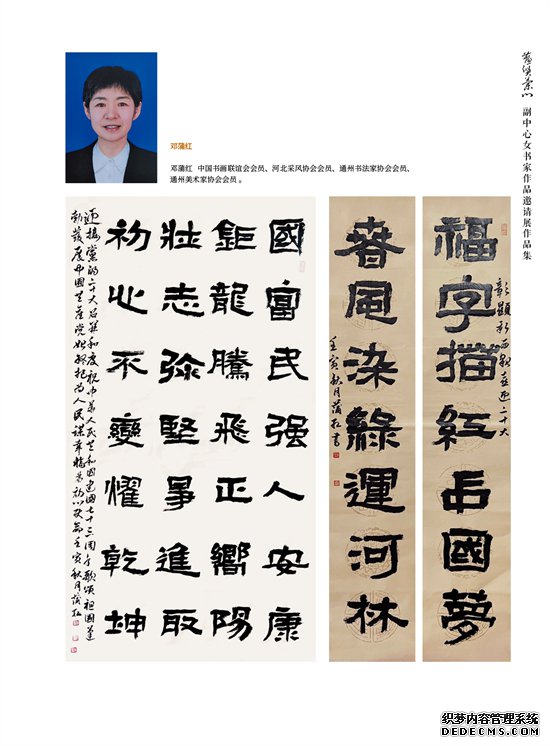 邓蒲红
邓蒲红 中国书画联谊会会员、河北采风协会会员、通州书法家协会会员、
通州美术家协会会员。
副中心女书家作品邀请展作品集
國富民强人安康
鉅龍騰飛正嚮陽
壯志弥堅爭進取
初心不變耀乾坤
迎接黨的二十大召開和慶祝中华人民共和国建國七十三周年歌颂祖国蓬
勃發展中国共產党始终把为人民谋幸福为初心 壬寅秋月蒲红
福字描红占國夢
彰顯新西熱血迎二十大
春風染綠運河林
壬寅秋月蒲红書
织梦内容管理系统
DEDECMS.COM